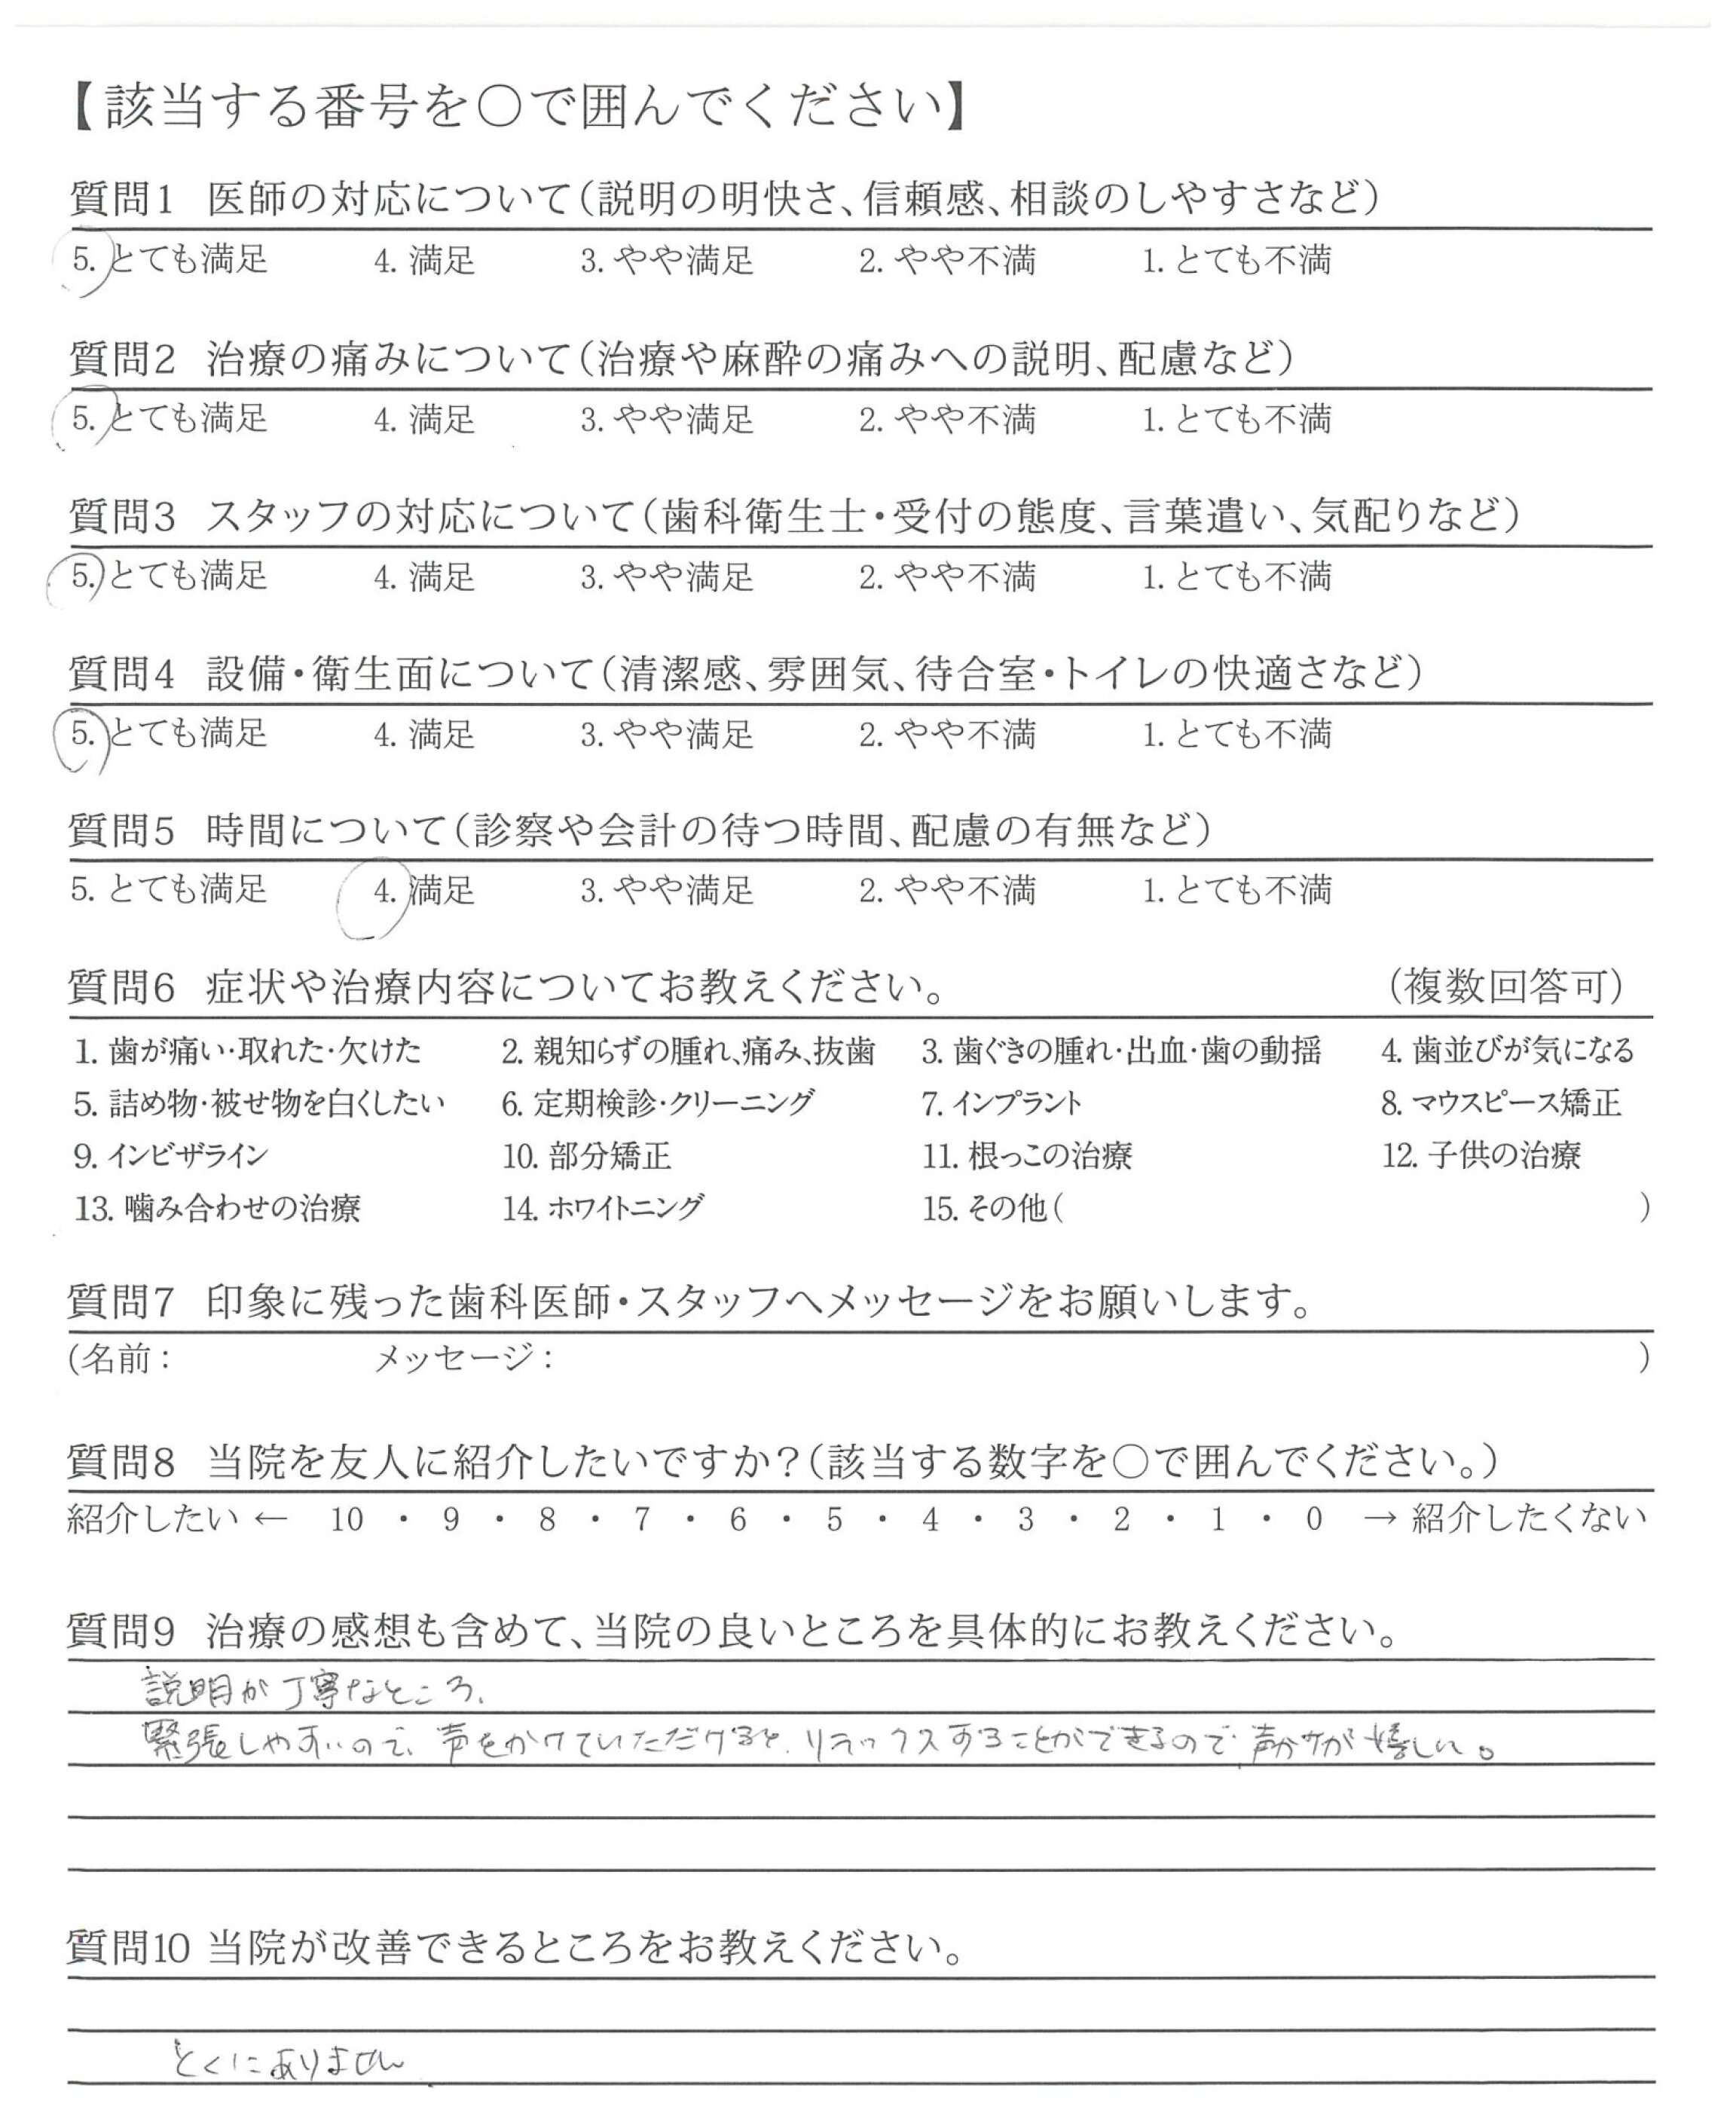 【該当する番号を○で囲んでください】
質問1 医師の対応について(説明の明快さ、信頼感、相談のしやすさなど)
5. とても満足 4. 満足 3. やや満足 2. やや不満 1. とても不満
質問2 治療の痛みについて(治療や麻酔の痛みへの説明、配慮など)
5. とても満足 4. 満足 3. やや満足 2. やや不満 1. とても不満
質問3 スタッフの対応について(歯科衛生士・受付の態度、言葉遣い、気配りなど)
5. とても満足 4. 満足 3. やや満足 2. やや不満 1. とても不満
質問4 設備・衛生面について(清潔感、雰囲気、待合室・トイレの快適さなど)
5. とても満足 4. 満足 3. やや満足 2. やや不満 1. とても不満
質問5 時間について(診察や会計の待つ時間、配慮の有無など)
5. とても満足 4. 満足 3. やや満足 2. やや不満 1. とても不満
質問6 症状や治療内容についてお教えください。 (複数回答可)
1. 歯が痛い・取れた・欠けた 2. 親知らずの腫れ、痛み、抜歯 3. 歯ぐきの腫れ・出血・歯の動揺 4. 歯並びが気になる
5. 詰め物・被せ物を白くしたい 6. 定期検診・クリーニング 7. インプラント 8. マウスピース矯正
9. インビザライン 10. 部分矯正 11. 根っこの治療 12. 子供の治療
13. 噛み合わせの治療 14. ホワイトニング 15. その他( )
質問7 印象に残った歯科医師・スタッフへメッセージをお願いします。
(名前: メッセージ: )
質問8 当院を友人に紹介したいですか?(該当する数字を○で囲んでください。)
紹介したい ← 10 ・ 9 ・ 8 ・ 7 ・ 6 ・ 5 ・ 4 ・ 3 ・ 2 ・ 1 ・ 0 → 紹介したくない
質問9 治療の感想も含めて、当院の良いところを具体的にお教えください。
説明が丁寧なところ、
緊張しやすいので、声をかけていただけると、リラックスすることができるので、声かけが嬉しい。
質問10 当院が改善できるところをお教えください。
とくにありません